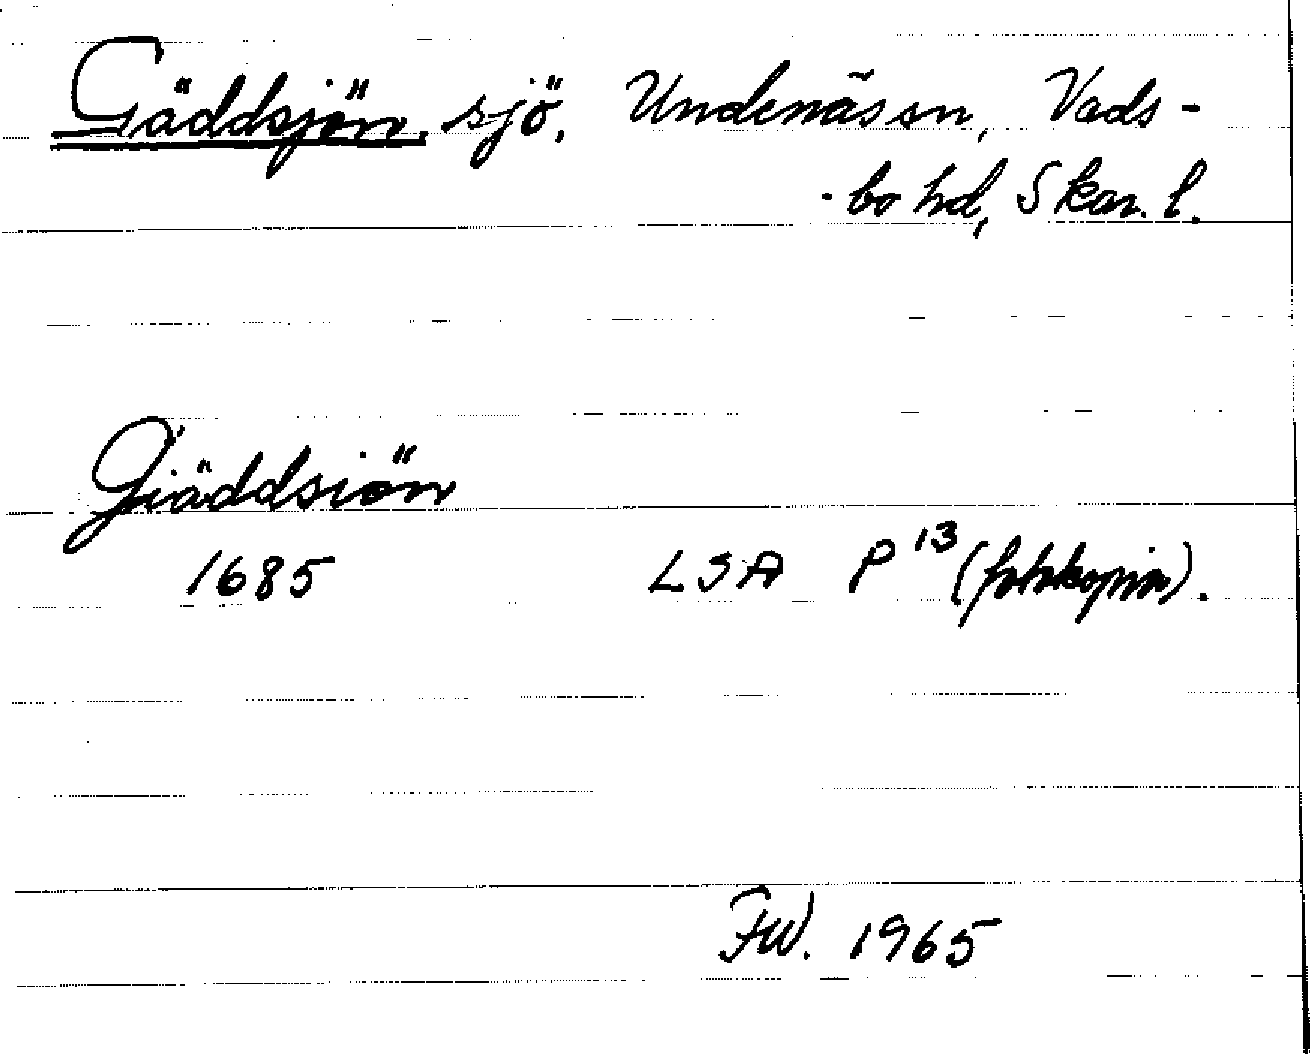 Gäddsjön, sjö, Undenäs sn, Vads-
-bo hd, Skar. l.
Giäddsiön
1685 LSA P 13 (fotokopia).
FW. 1965